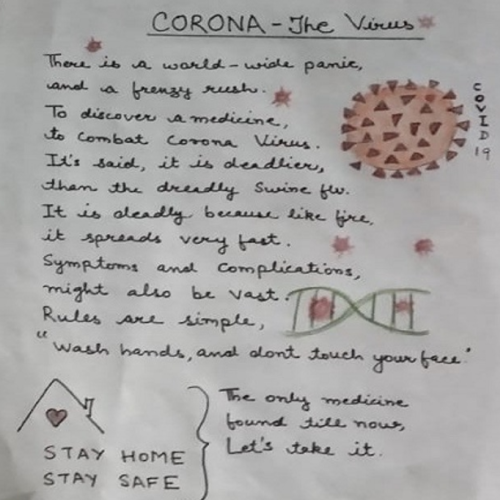 CORONA - The Virus
There is a world-wide panic,
and a frenzy rush.
To discover a medicine,
to combat Corona Virus.
It's said, it is deadlier,
than the dreadly Swine flu.
It is deadly because like fire,
it spreads very fast.
Symptoms and complications,
might also be vast.
Rules are simple,
"Wash hands, and dont touch your face"
COVID 19
STAY HOME
STAY SAFE
The only medicine
found till now,
Let's take it.